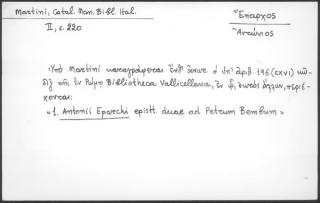 Martini, Catal. Man. Bibl. Ital.
II, σ. 220
Ἔπαρχος
Ἀντώνιος
Ὑπὸ Martini καταγράφεται ὁ ὑπ' ἀριθ. 196 (CXVI) κῶ-
διξ τῆς ἐν Ῥώμῃ Bibliotheca Vallicellana, ἐν ᾧ, ἐκτὸς ἄλλων, περιέ-
χονται:
«1. Antonii Eparchi epistt. duae ad Petrum Bembum»